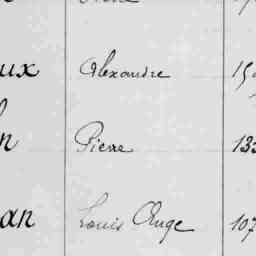 ux Alexandre
n Pierre 133
an Louis Ange 107